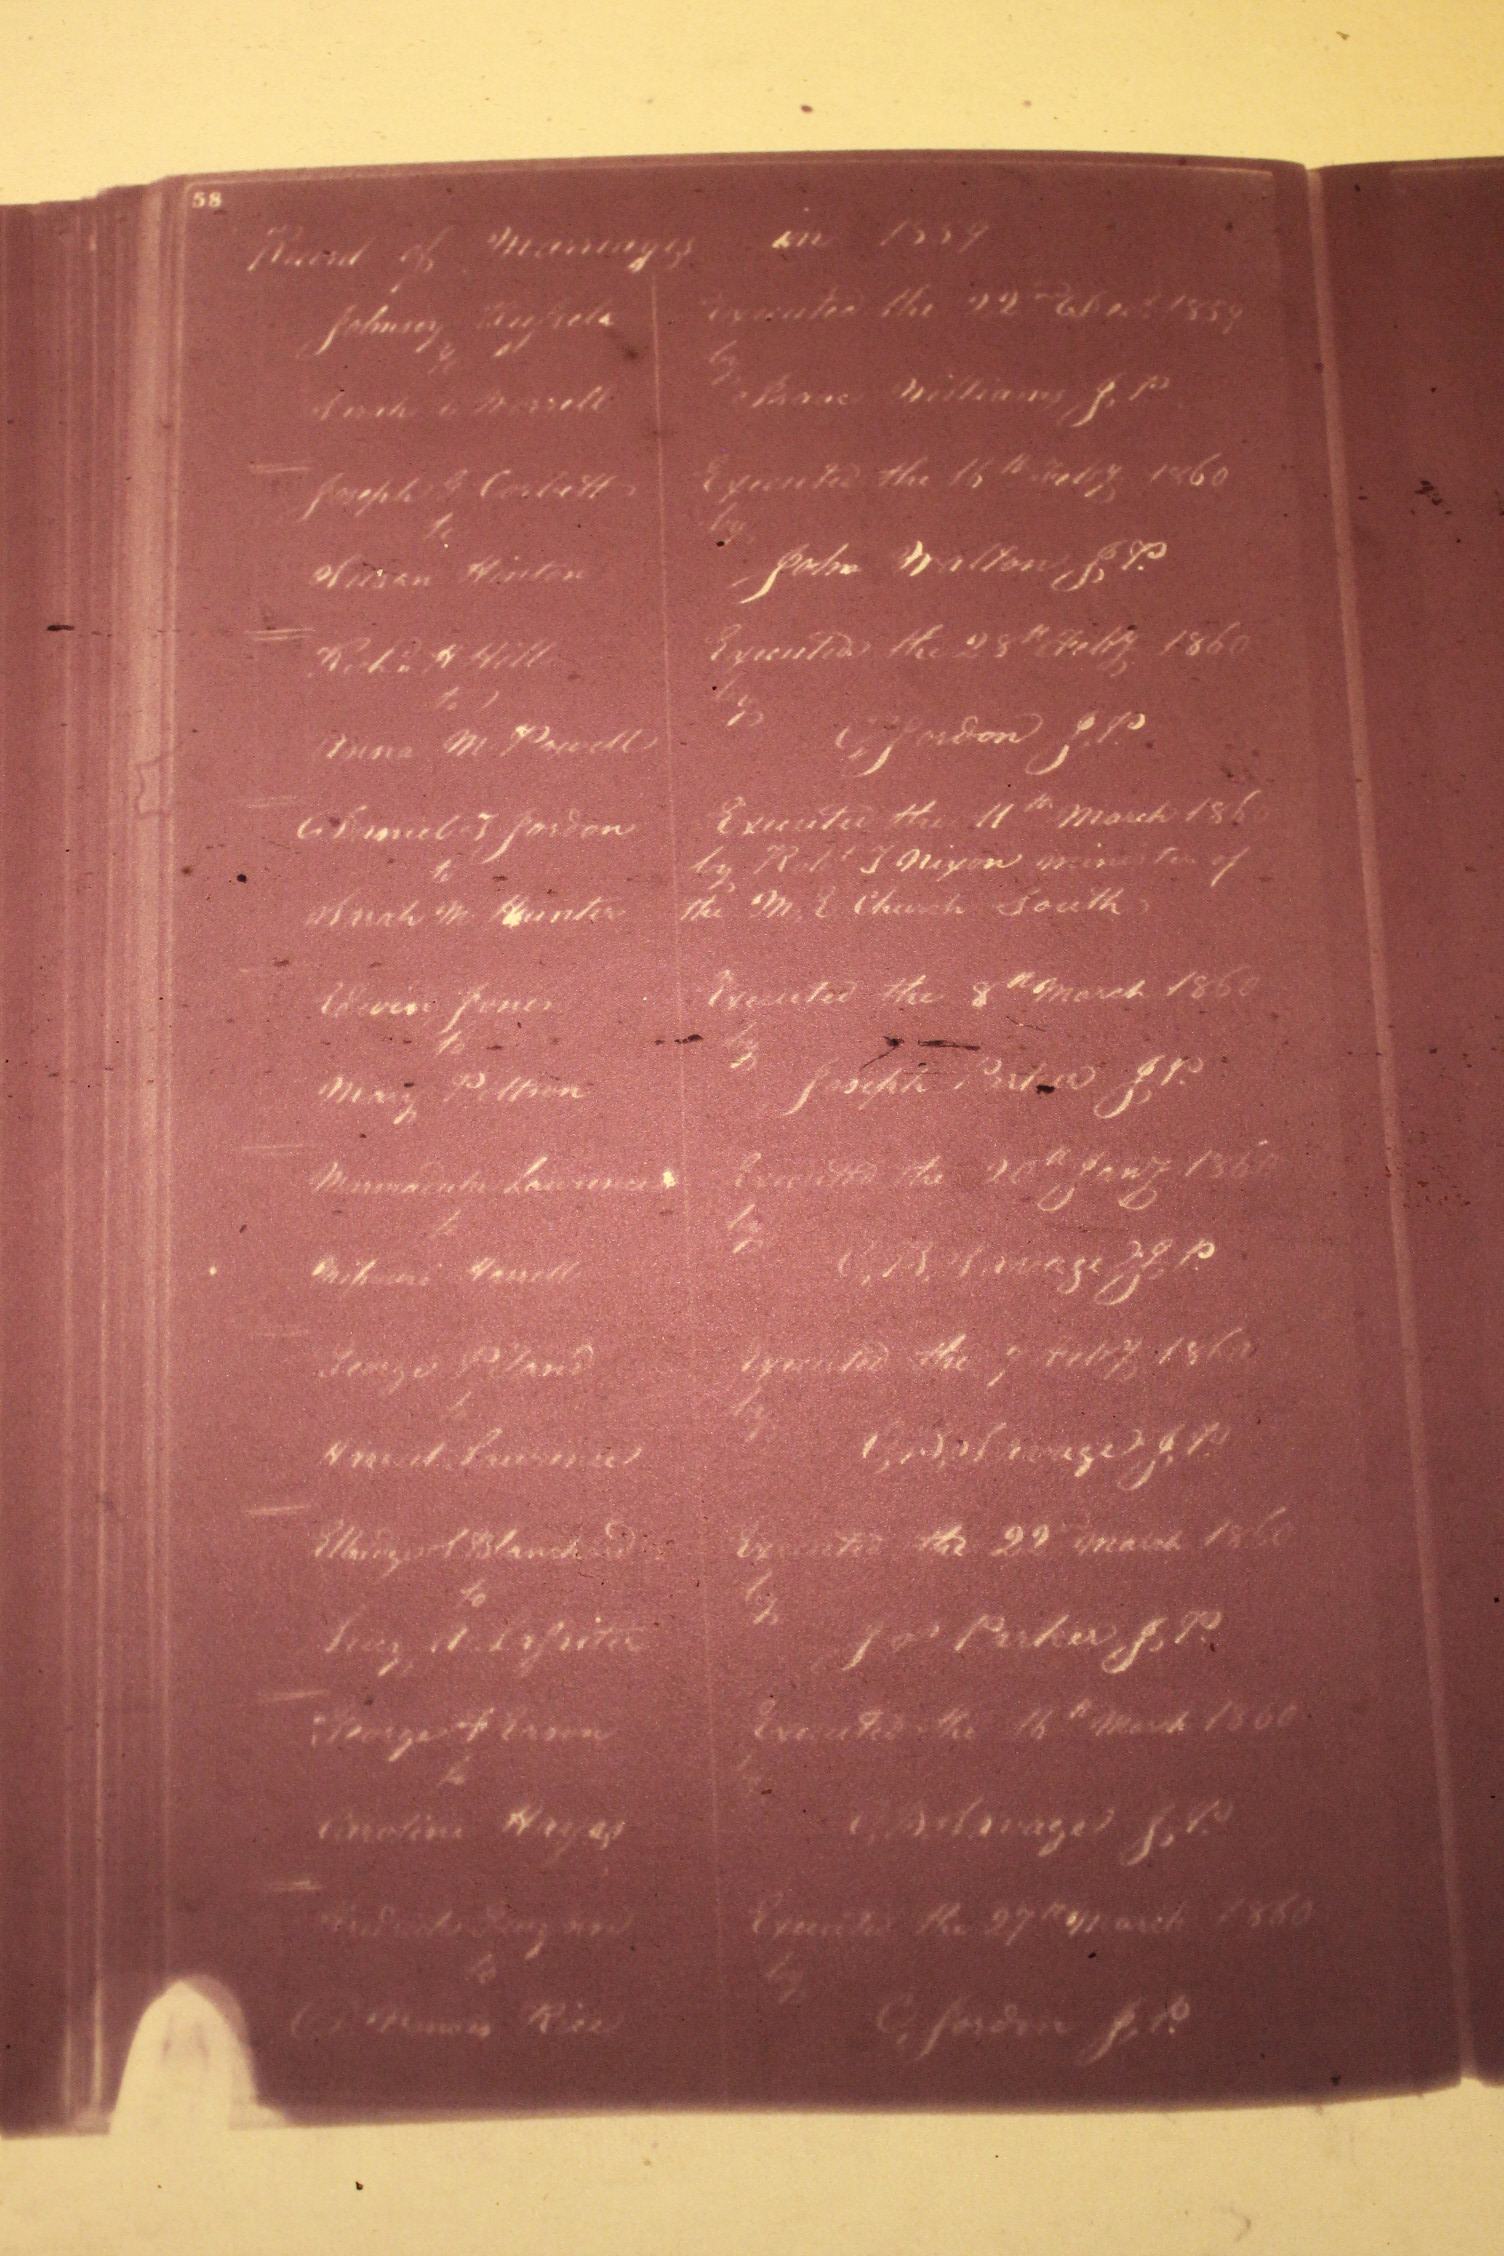 58
Record of Marriages in 1859
Johnson
Executed the 22nd Decr 1859
to
by
Worrell
Isaac Williams J, P
Joseph Corbett
Executed the 15th Feby 1860
to
by
Susan Hinton
John Walton J, P.
Richd H Hill
Executed the 28th Feby 1860
to
by
Anna M Powell
C, Jordon J, P.
Samuel Jordon
Executed the 11th March 1860
to
by Robt T Nixon minister of
Sarah M Hunter
the M, E Church South
Edwin Jones
Executed the 8th March 1860
to
by
Mary Pettson
Joseph Parker J, P.
Marmaduke Lawrence
Executed the 20th Jany 1860
to
by
Harrell
C, B, Savage J, P
George P Land
Executed the 7 Feby 1860
to
by
Harriet Lawrence
C, B, Savage J, P.
Blanchard
Executed the 22nd March 1860
to
by
Lassiter
Jos Parker J, P.
George Eason
Executed the 15th March 1860
to
by
Caroline Hayes
C, B, Savage J, P.
Executed the 27th March 1860
to
by
Rice
C, Jordon J, P.